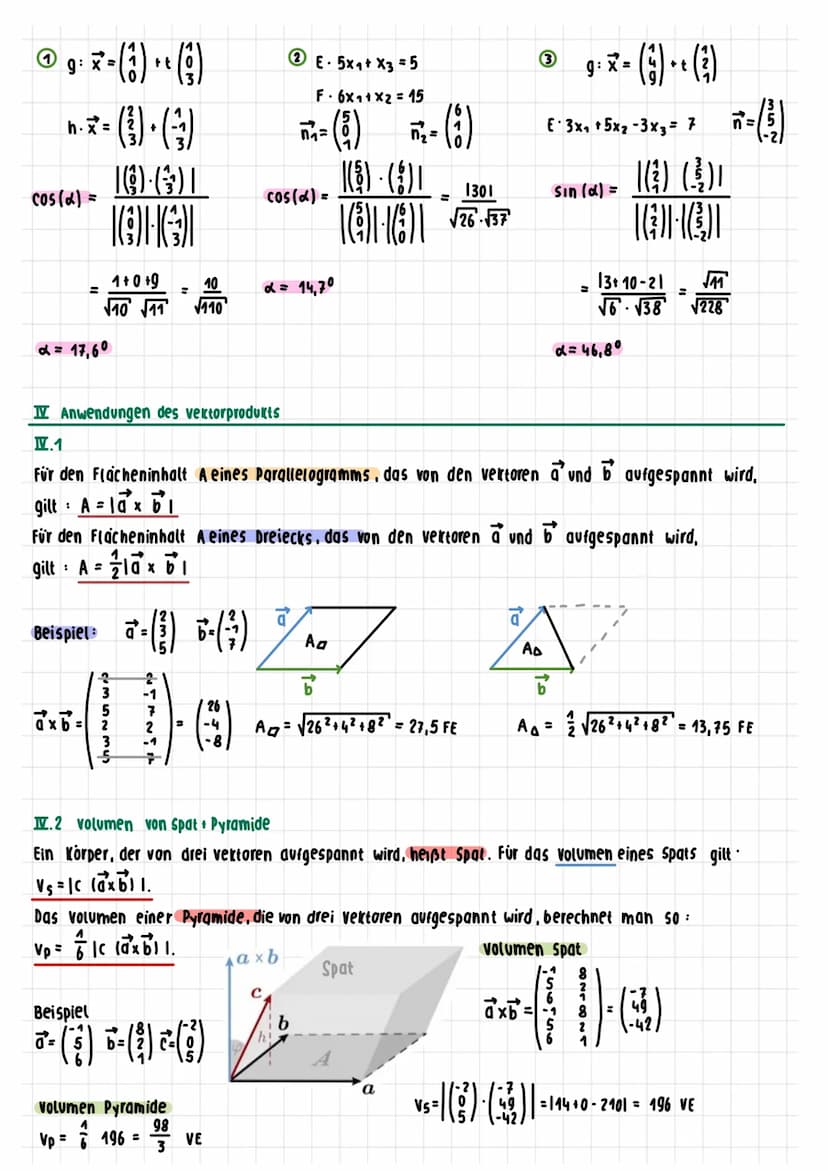 ① g: x⃗ = (1 1 0) + t (1 0 3)
h: x⃗ = (2 2 3) + (1 -1 3)
cos(α) = |(1 0 3) · (1 -1 3)| / |(1 0 3)| · |(1 -1 3)|
= 1+0+9 / √10 √11 = 10 / √110
α = 17,6°
② E: 5x₁ + x₃ = 5
F: 6x₁ + x₂ = 15
n₁⃗ = (5 0 1) n₂⃗ = (6 1 0)
cos(α) = |(5 0 1) · (6 1 0)| / |(5 0 1)| · |(6 1 0)| = |30| / √26 · √37
α = 14,7°
③ g: x⃗ = (1 4 9) + t (1 2 1)
E: 3x₁ + 5x₂ - 3x₃ = 7 n⃗ = (3 5 -2)
sin(α) = |(1 2 1) (3 5 -2)| / |(1 2 1)| · |(3 5 -2)|
= |3+10-2| / √6 · √38 = √11 / √228
α = 46,8°
IV Anwendungen des Vektorprodukts
IV.1
Für den Flächeninhalt A eines Parallelogramms, das von den Vektoren a⃗ und b⃗ aufgespannt wird,
gilt : A = |a⃗ x b⃗|
Für den Flächeninhalt A eines Dreiecks, das von den Vektoren a⃗ und b⃗ aufgespannt wird,
gilt : A = 1/2 |a⃗ x b⃗|
Beispiel: a⃗ = (2 3 5) b⃗ = (2 -1 7)
a⃗ A▱ b⃗
a⃗ A△ b⃗
a⃗ x b⃗ = (2 3 5 2 3 5 2 -1 7 2 -1 7) = (26 -4 -8) A▱ = √26²+4²+8² = 27,5 FE A△ = 1/2 √26²+4²+8² = 13,75 FE
IV.2 Volumen von Spat + Pyramide
Ein Körper, der von drei Vektoren aufgespannt wird, heißt Spat. Für das Volumen eines Spats gilt:
Vs = |c (a⃗xb⃗)|.
Das Volumen einer Pyramide, die von drei Vektoren aufgespannt wird, berechnet man so :
Vp = 1/6 |c (a⃗xb⃗)|.
Beispiel
a⃗ = (-1 5 6) b⃗ = (8 2 1) c⃗ = (-2 0 5)
Volumen Pyramide
Vp = 1/6 196 = 98/3 VE
a × b
Spat
c
b
h
A
a
Volumen Spat
a⃗xb⃗ = (-1 5 6 -1 5 6 8 2 1 8 2 1) = (-7 49 -42)
Vs = |(-2 0 5) · (-7 49 -42)| = |14+0-210| = 196 VE